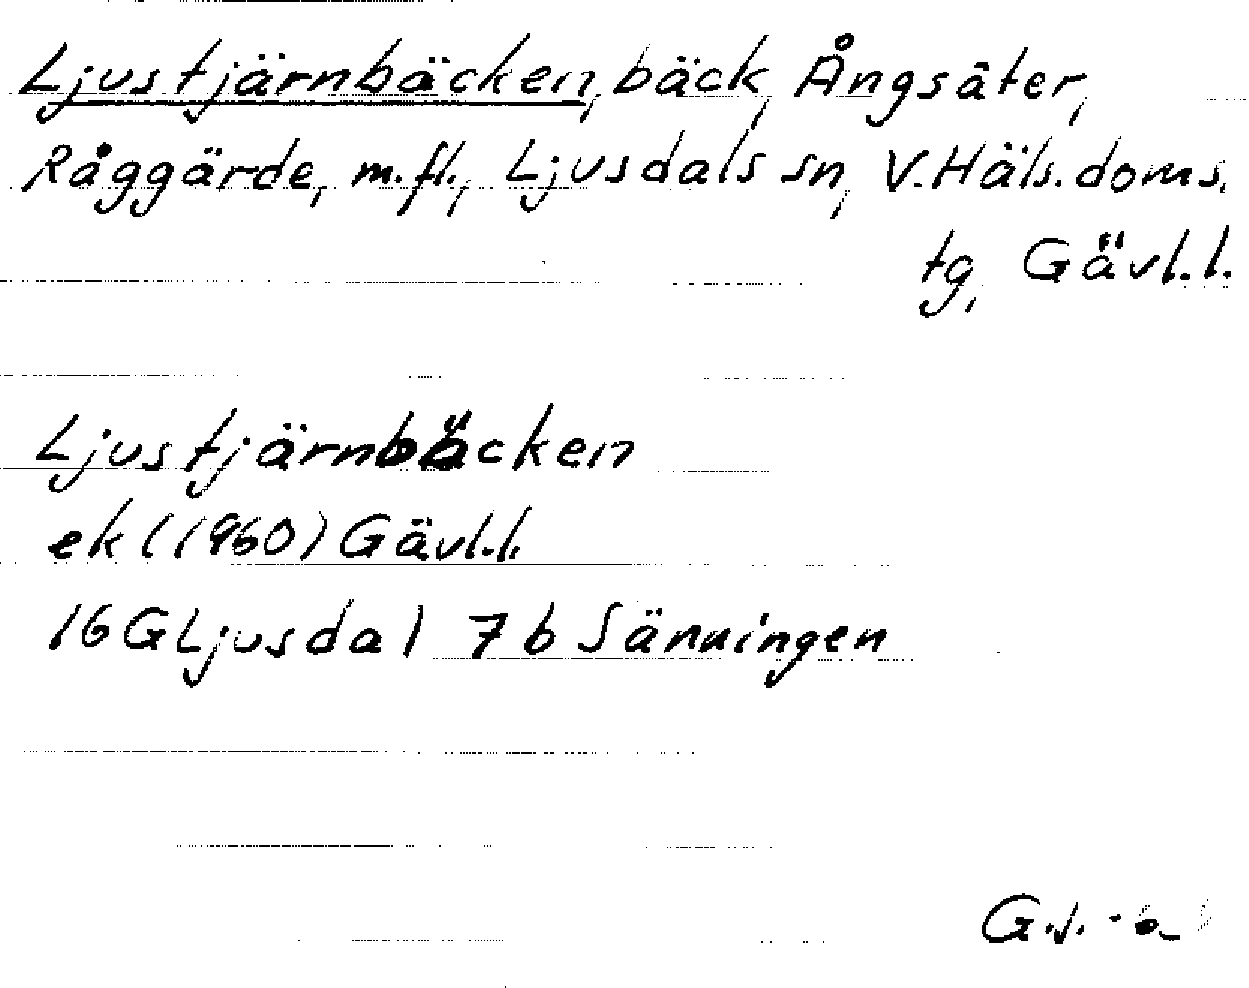 Ljustjärnbäcken, bäck, Ångsäter,
Råggärde, m.fl., Ljusdals sn, V.Häls.doms.
tg, Gävl.l.
Ljustjärnbäcken
ek (1960) Gävl.l.
16G Ljusdal 7b Sänningen